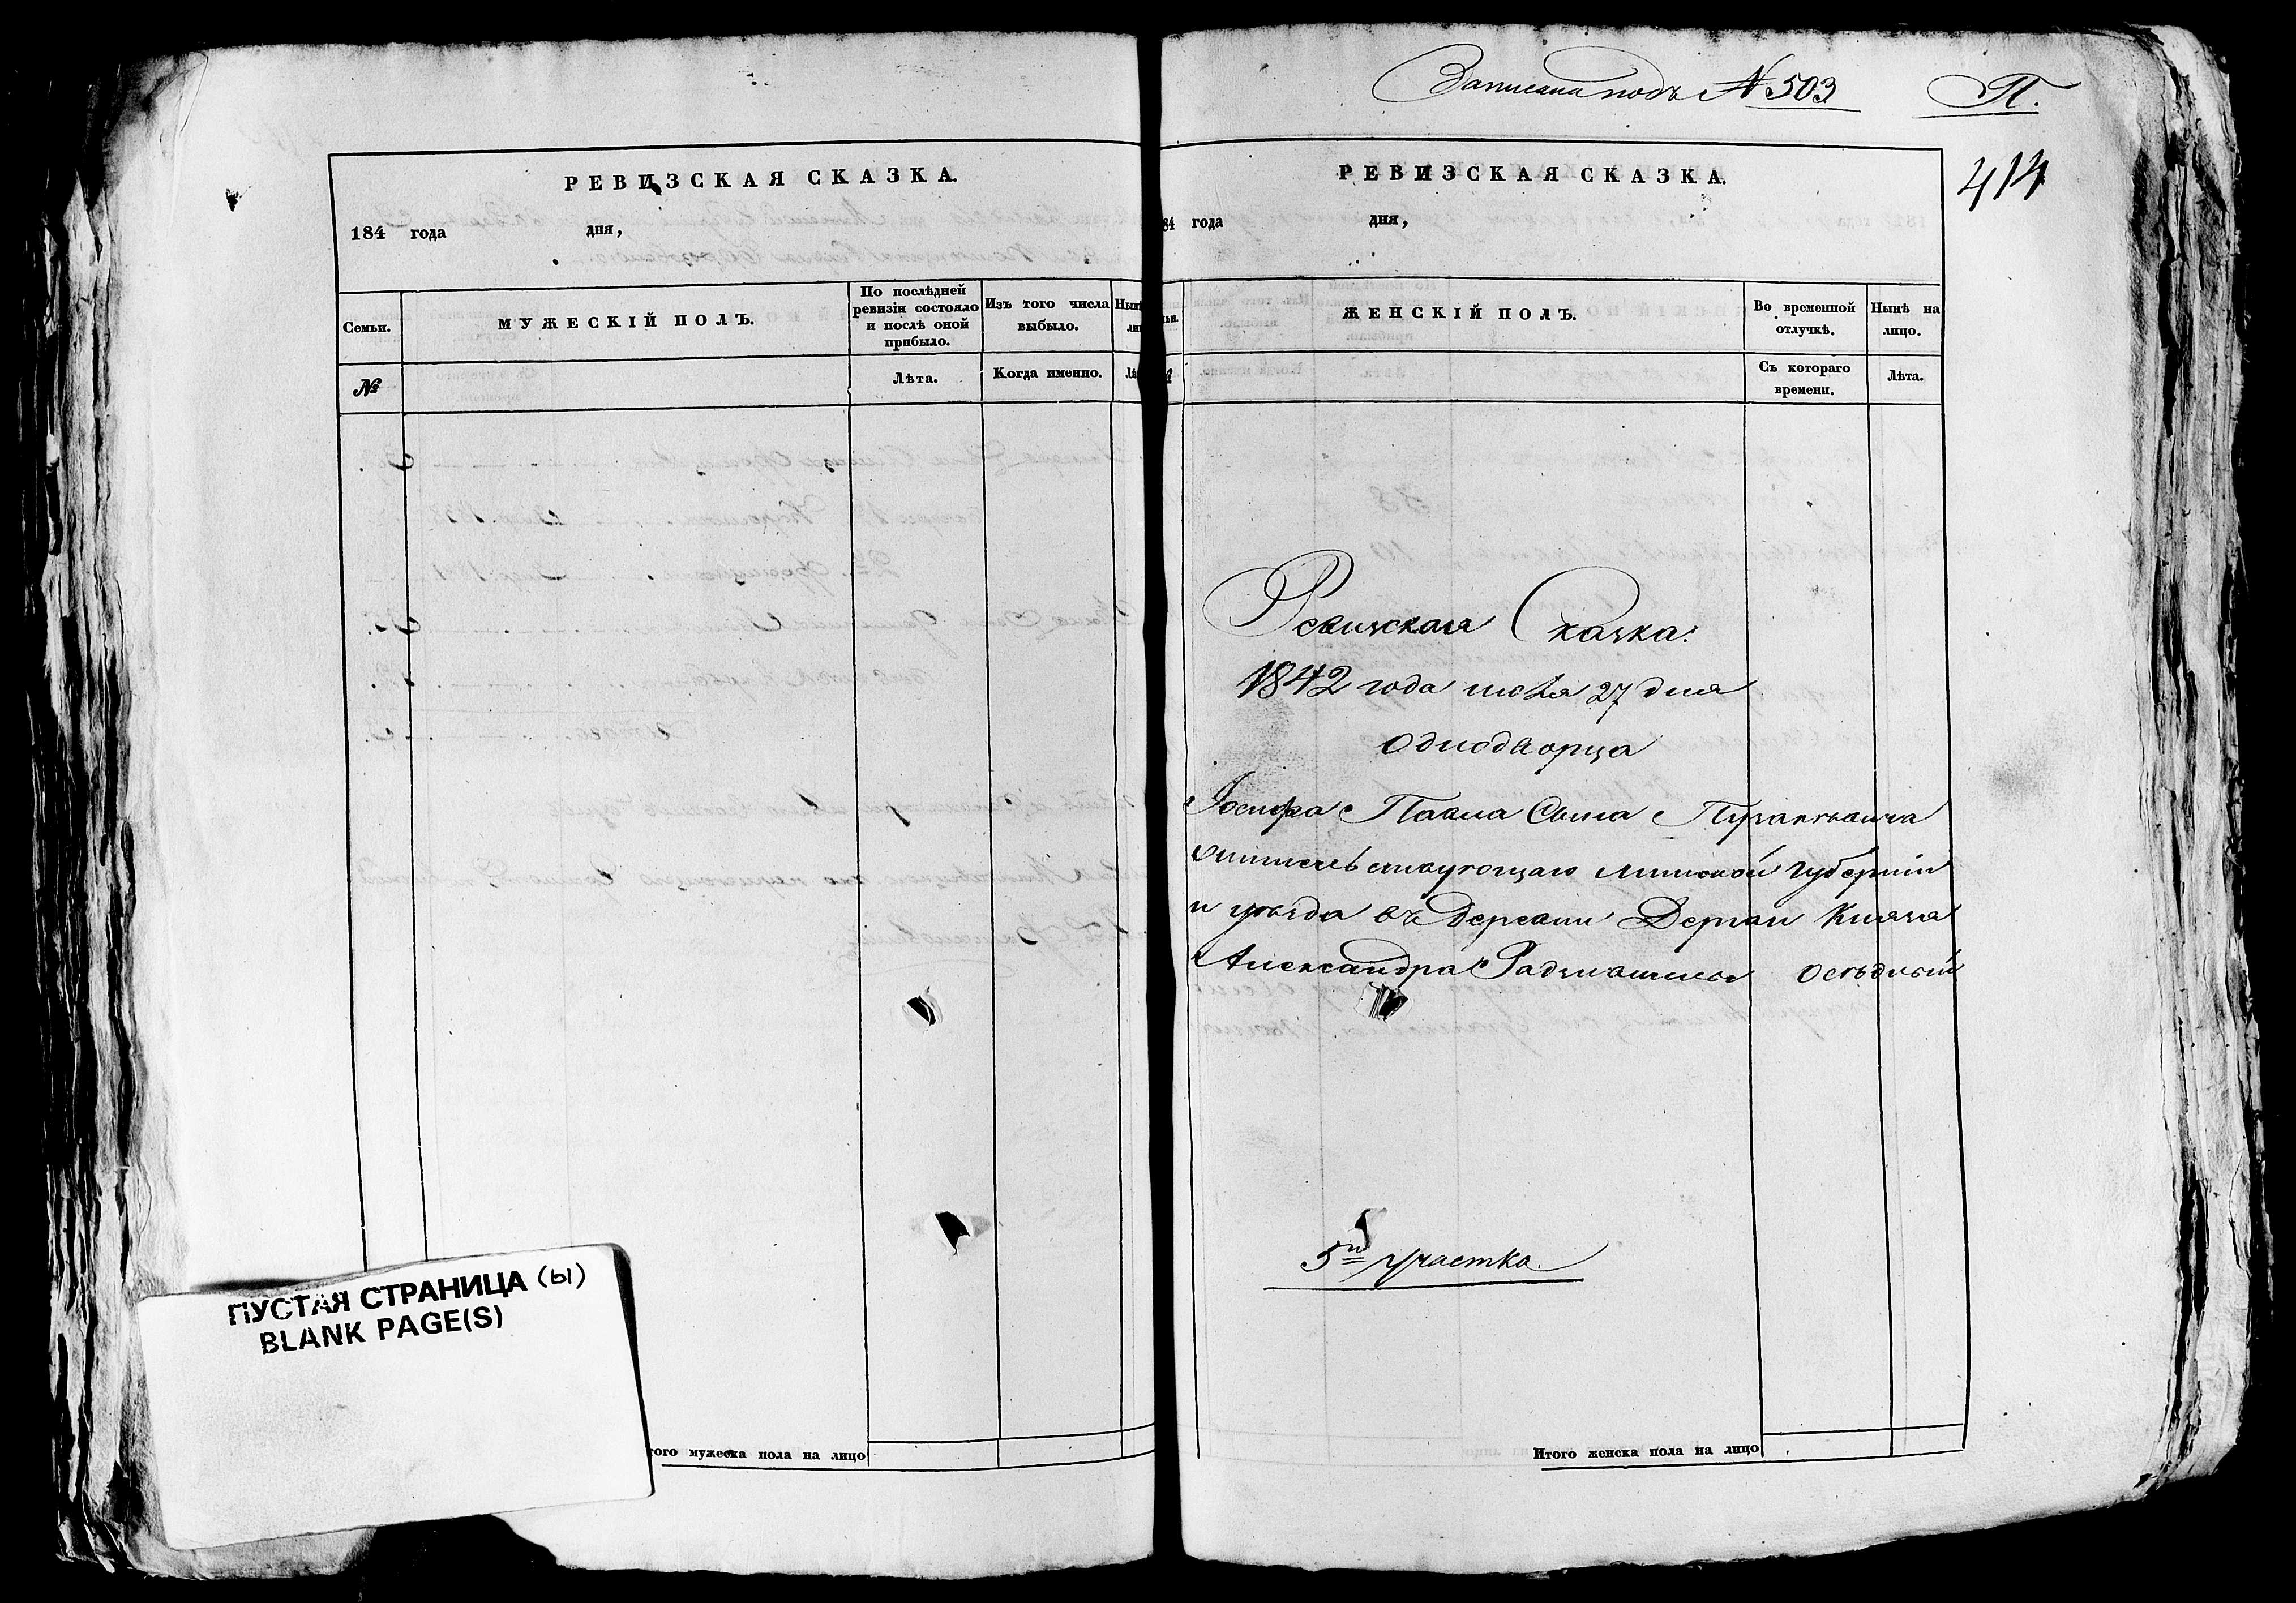 РЕВИЗСКАЯ СКАЗКА.
184 года дня,
Семьи.
МУЖЕСКІЙ ПОЛЪ.
По послѣдней ревизіи состояло и послѣ оной прибыло.
Изъ того числа выбыло.
№
Лѣта.
Когда именно.
того мужеска пола на лицо
ПУСТАЯ СТРАНИЦА (ы)
BLANK PAGE(S)
Записана подъ № 503
П.
414
РЕВИЗСКАЯ СКАЗКА.
84 года дня,
ЖЕНСКІЙ ПОЛЪ.
Во временной отлучкѣ.
Нынѣ на лицо.
Съ котораго времени.
Лѣта.
Ревизская Сказка.
1842 года июля 27 дня
однодворца
Іосифа Павла Сына
жительствующаго минской губерніи
и уѣзда въ деревни Князя
Александра Радзивилла осѣдлый
5й участка.
Итого женска пола на лицо